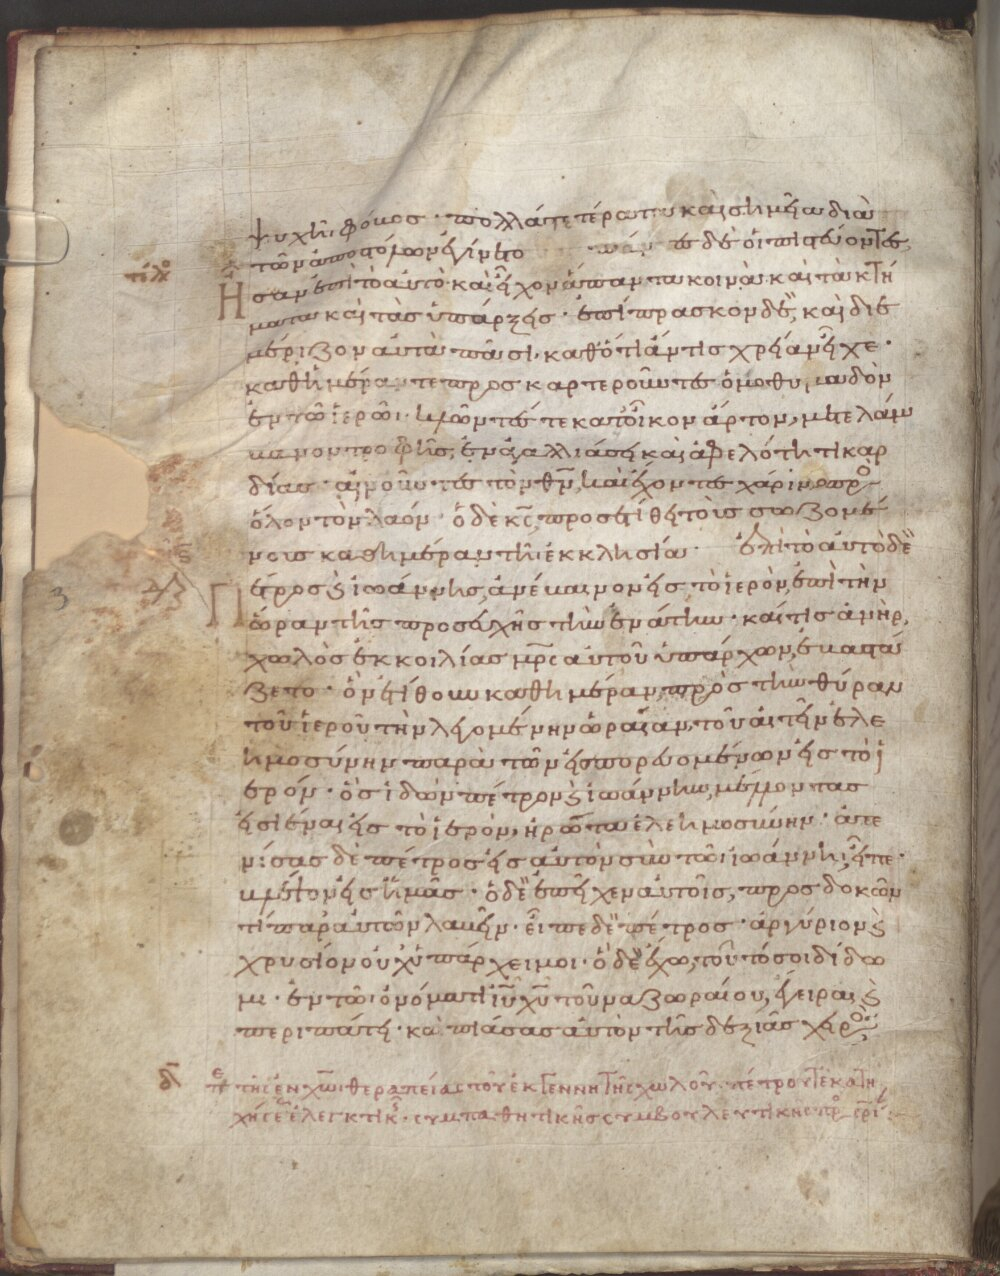 ψυχῆ φόβος · πολλά τε τέρατα καὶ σημεῖα διὰ
τῶν ἀποστόλων ἐγίνετο · πάντες δὲ οἱ πιστεύοντες
τέλος
Ἦσαν ἐπὶ τὸ αὐτὸ · καὶ εἶχον ἅπαντα κοινὰ καὶ τὰ κτή
ματα καὶ τὰς ὑπάρξεις · ἐπίπρασκον δὲ, καὶ διε
μέριζον αὐτὰ πᾶσι, καθότι ἄν τις χρείαν εἶχε ·
καθημέραν τε προσκαρτεροῦντες ὁμοθυμαδὸν
ἐν τῶ ἱερῶι · κλῶντές τε κατ' οἶκον ἄρτον, μετελάμ
βανον τροφῆς, ἐν ἀγαλλιάσει καὶ ἀφελότητι καρ
δίας · αἰνοῦντες τὸν θν, καὶ ἔχοντες χάριν πρὸς
ὅλον τὸν λαόν · ὁ δὲ κς, προσετίθει τοὺς σωζομέ
νους καθημέραν τῆ ἐκκλησία · ἐπὶ τὸ αὐτὸ δὲ
Πέτρος ϗ ἰωάννης, ἀνέβαινον εἰς τὸ ἱερὸν, ἐπὶ τὴν
ὥραν τῆς προσευχῆς τὴν ἐνάτην · καί τις ἀνὴρ,
χωλὸς ἐκ κοιλίας μρς αὐτοῦ ὑπάρχων, ἐβαστά
ζετο · ὃν ἐτίθουν καθημέραν πρὸς τὴν θύραν
τοῦ ἱεροῦ τὴν λεγομένην ὡραίαν, τοῦ αἰτεῖν ἐλε
ημοσύνην παρὰ τῶν εἰσπορευομένων εἰς τὸ ἱ
ερόν · ὃς ἰδὼν πέτρον ϗ ἰωάννην, μέλλοντας
εἰσιέναι εἰς τὸ ἱερὸν, ἠρώτα ἐλεημοσύνην · ἀτε
νίσας δὲ πέτρος εἰς αὐτὸν σὺν τῶι ἰωάννη, εἶπε ·
βλέψον εἰς ἡμᾶς · ὁ δὲ ἐπεῖχεν αὐτοῖς, προσδοκῶν
τὶ παρ' αὐτῶν λαβεῖν · εἶπε δὲ πέτρος · ἀργύριον ϗ
χρυσίον οὐχ ὑπάρχει μοι · ὃ δὲ ἔχω, τοῦτό σοι δίδω
μι · ἐν τῶ ὀνόματι ιυ χυ τοῦ ναζωραίου, ἔγειραι ϗ
περιπάτει · καὶ πιάσας αὐτὸν τῆς δεξιᾶς χειρὸς
δ περὶ τῆς ἐν χω θεραπείας τοῦ ἐκ γεννητῆς χωλοῦ · πέτρου τε κατη
χήσεως ἐλεγκτικῆς · συμπαθητικῆς συμβουλευτικῆς πρὸς σρι